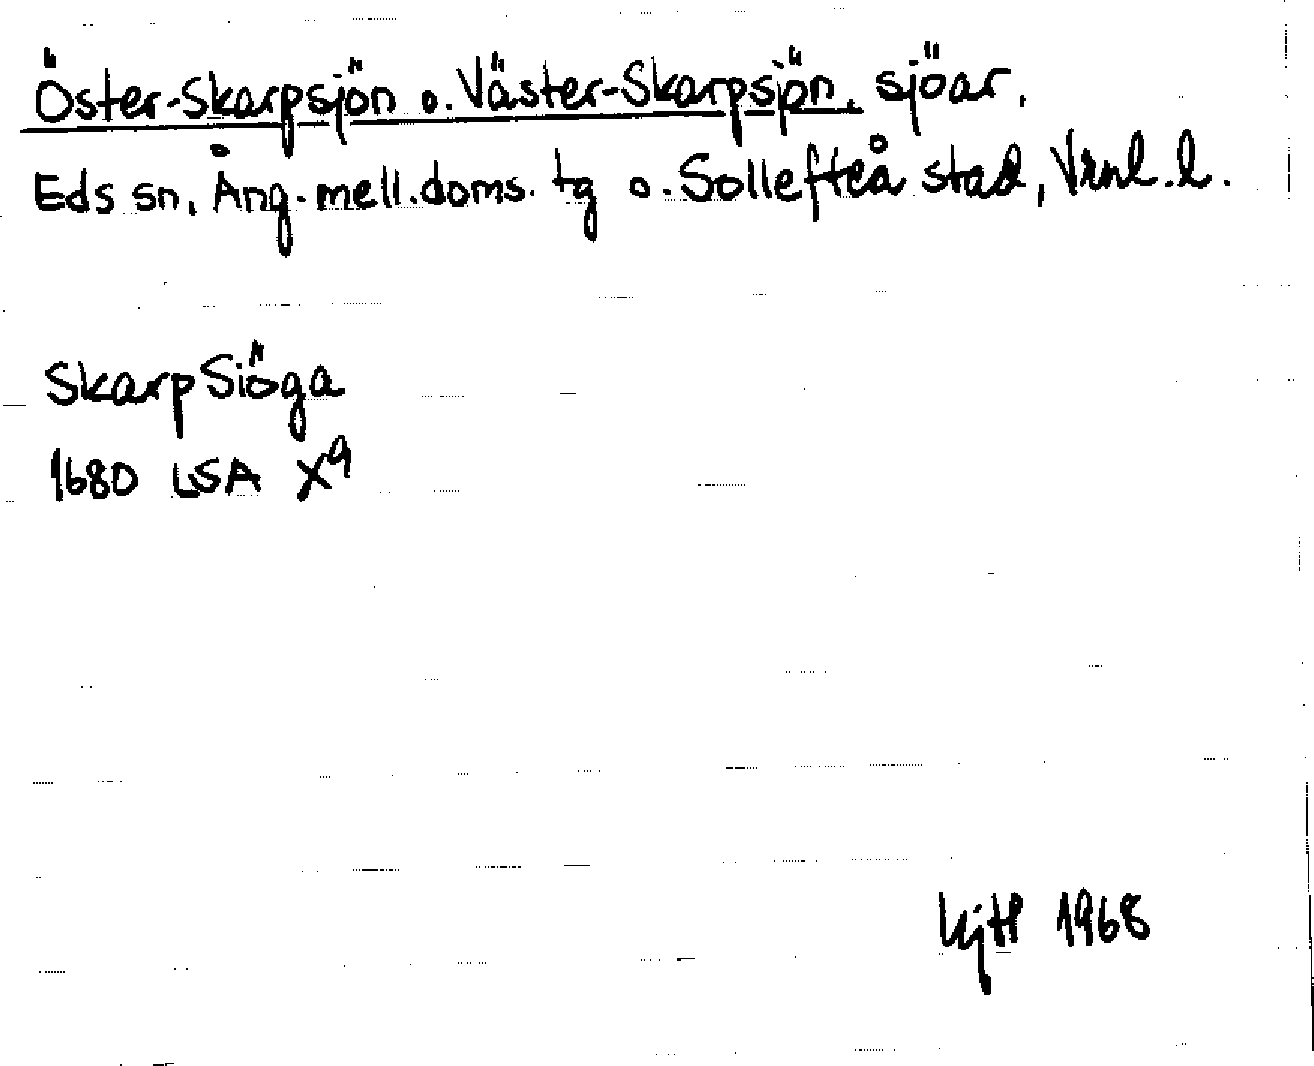 Öster-Skarpsjön o. Väster-Skarpsjön, sjöar,
Eds sn, Ång. mell. doms. tg o. Sollefteå stad, Vrnl. l.
SkarpSiöga
1680 LSA X9
1968